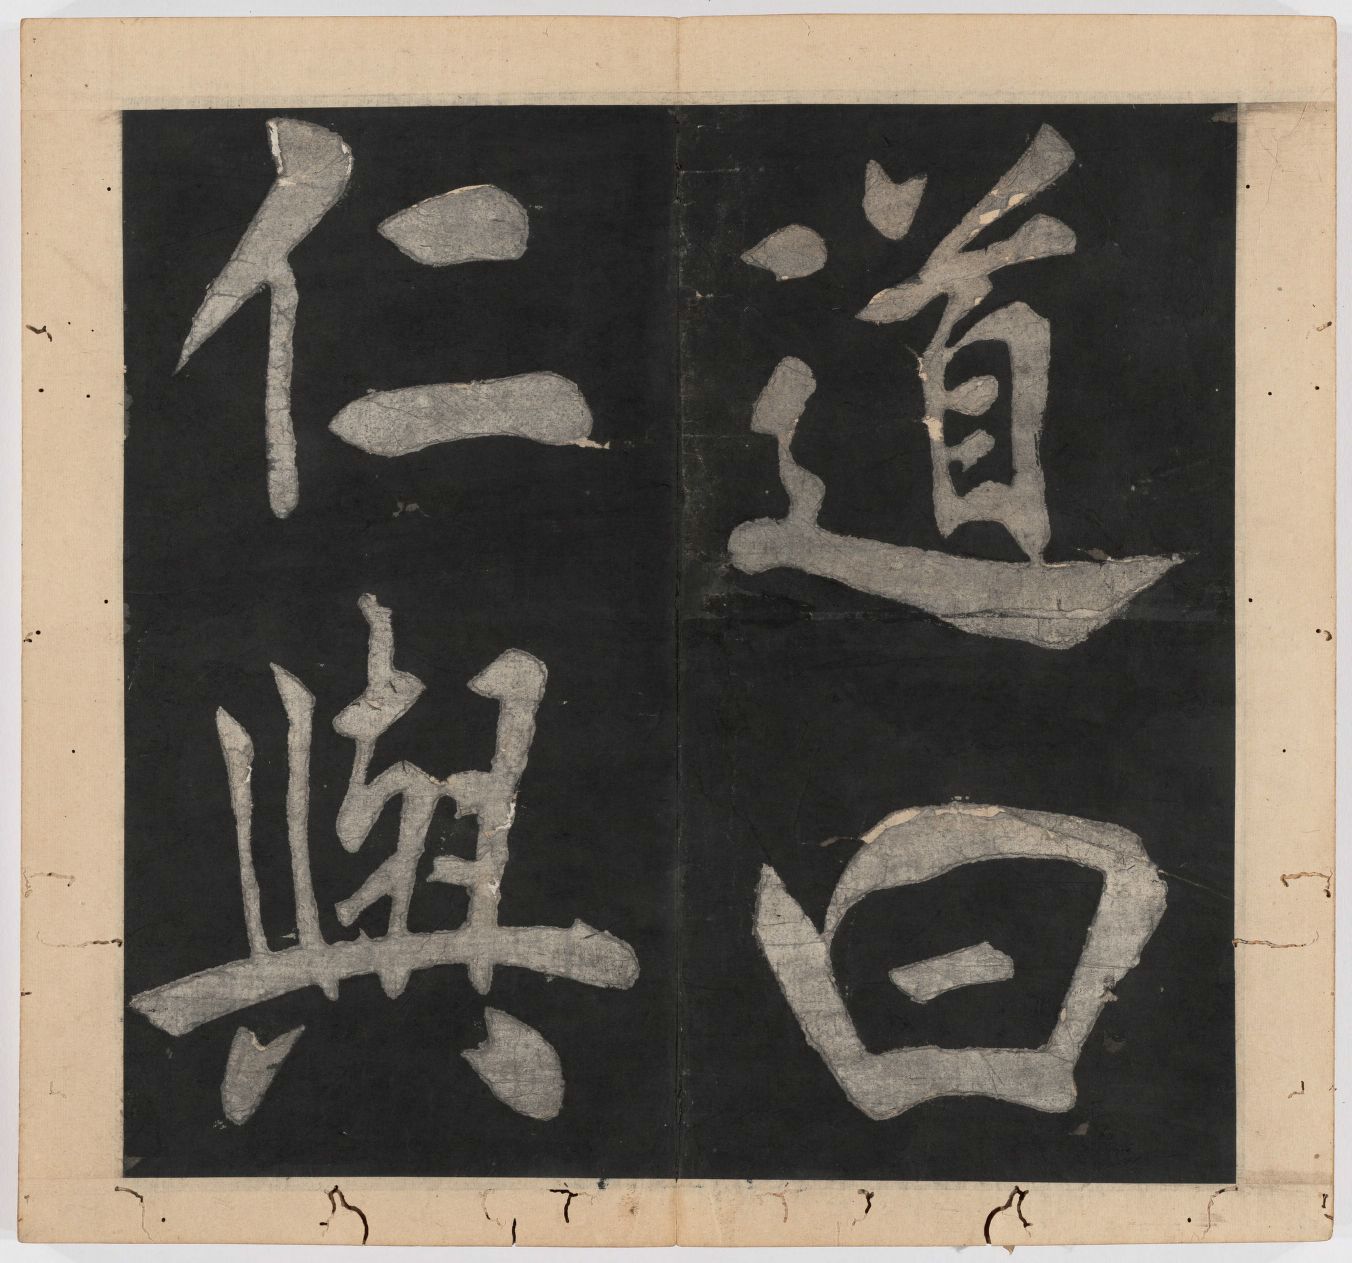 道曰
仁與